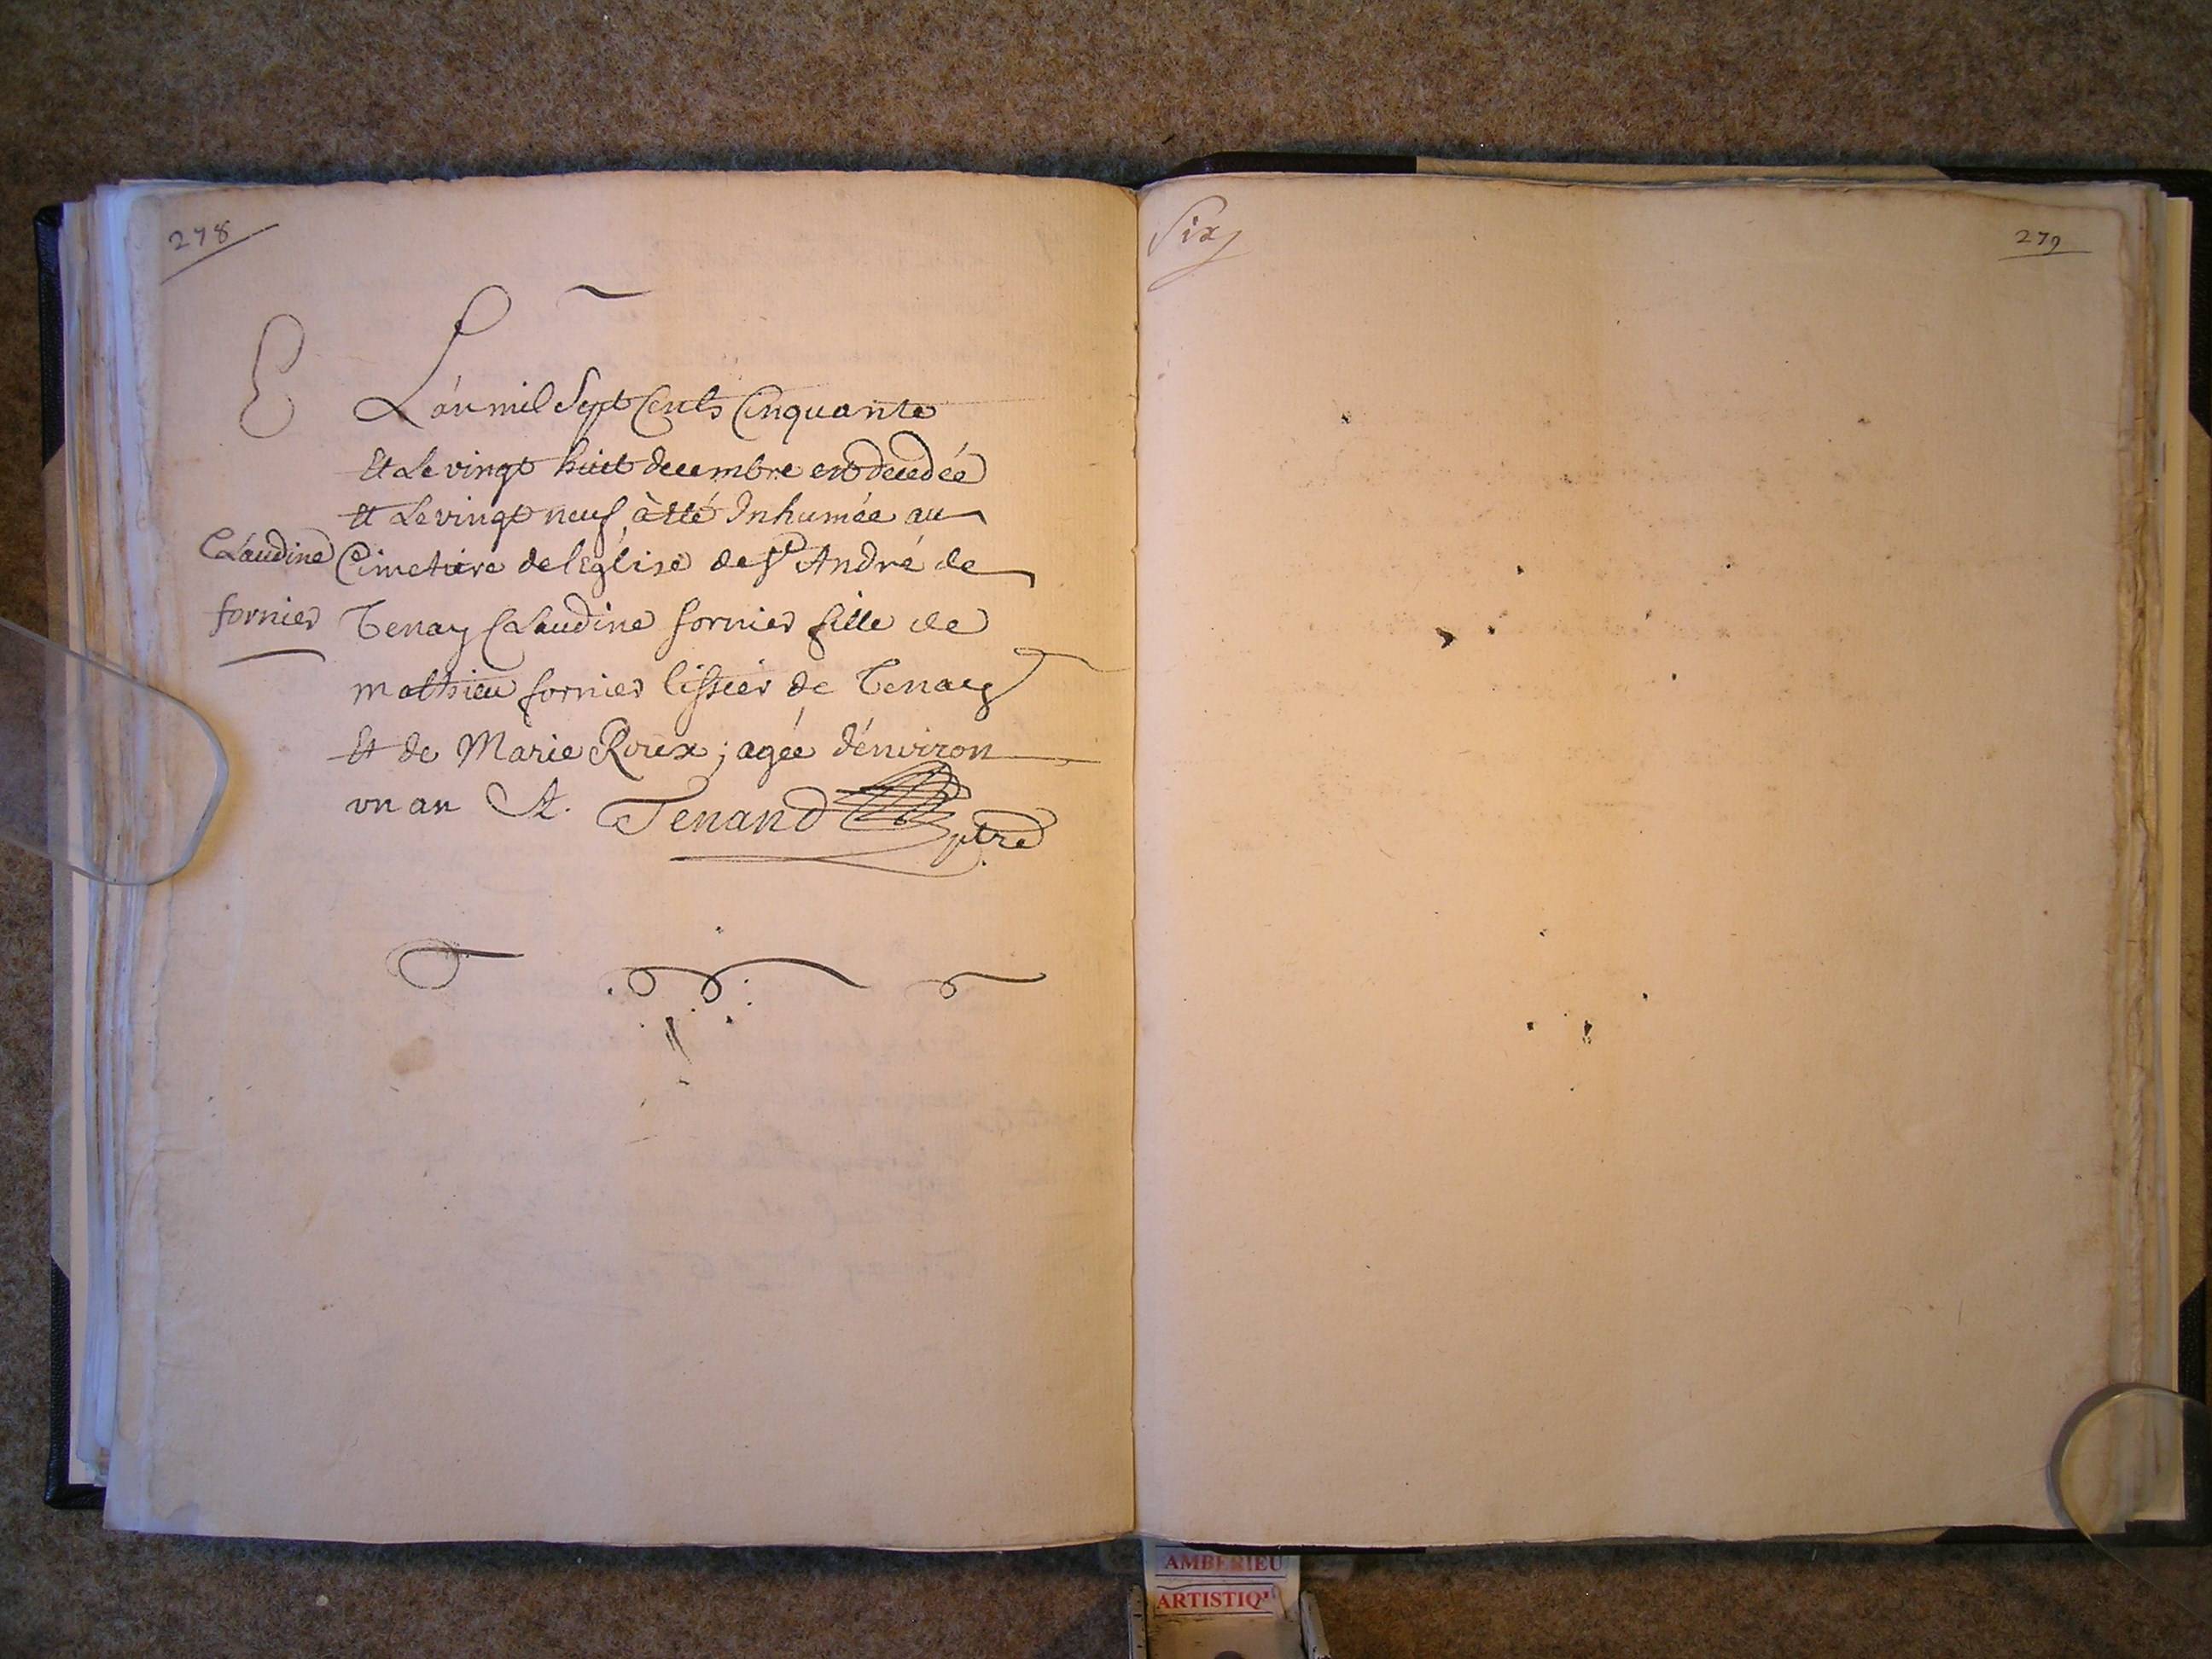 278
E
L'an mil Sept Cents Cinquante
Et Le vingt huit decembre est decedée
et Le vingt neuf à été Inhumée au
Claudine
Cimetiere de l'Eglise de St André de
fornier
Tenay Claudine fornier fille de
mathieu fornier lissier de Tenay
Et de Marie Roux; agée d'environ
vn an Et. Tenand ptre
Six
279
AMBERIEU
ARTISTIQ